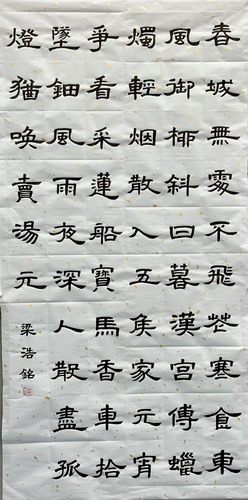 春城無處不飛花寒食東
風御柳斜日暮漢宮傳蠟
燭輕烟散入五侯家元宵
爭看采蓮船寶馬香車拾
墜鈿風雨夜深人散盡孤
燈猶喚賣湯元
梁浩銘